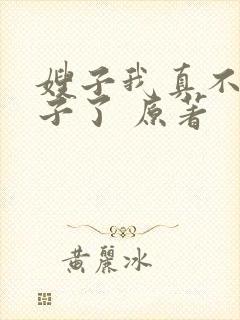 嫂子我真不
子了 原著
黄麗冰